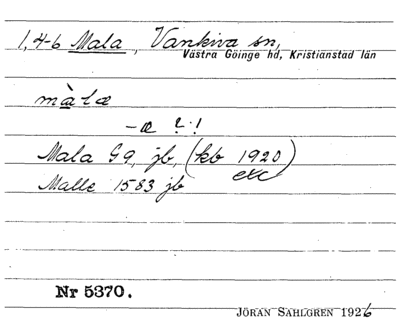 1, 4-6 Mala, Vankiva sn,
Västra Göinge hd, Kristianstad län
màlæ
-æ ?!
Mala G9, jb, (kb 1920)
etc
Malle 1583 jb
Nr 5370.
JÖRAN SAHLGREN 1926